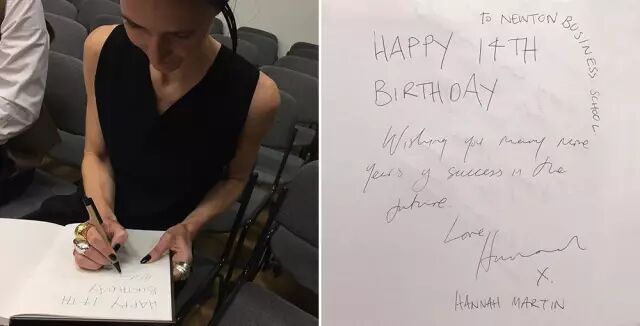 HAPPY 14TH
BIRTHDAY
TO NEWTON BUSINESS SCHOOL
HAPPY 14TH
BIRTHDAY
Wishing you many more
years of success in the
future.
Love,
Hannah
X.
HANNAH MARTIN